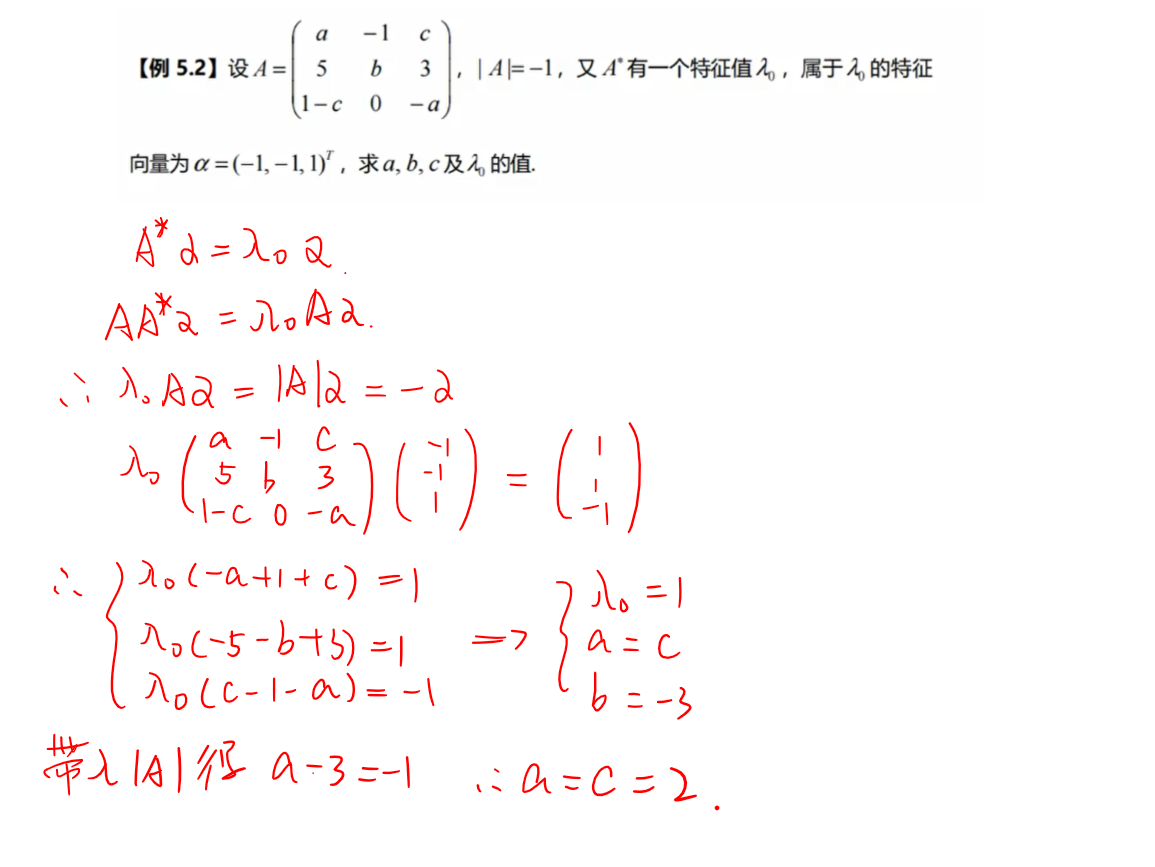 【例 5.2】设 A = ( a -1 c ; 5 b 3 ; 1-c 0 -a ), |A|=-1, 又 A* 有一个特征值 λ₀, 属于 λ₀ 的特征
向量为 α = (-1, -1, 1)ᵀ, 求 a, b, c 及 λ₀ 的值.
A*α = λ₀α.
AA*α = λ₀Aα.
∴ λ₀Aα = |A|α = -α
λ₀ ( a -1 c ; 5 b 3 ; 1-c 0 -a ) ( -1 ; -1 ; 1 ) = ( 1 ; 1 ; -1 )
∴ { λ₀(-a+1+c) = 1
λ₀(-5-b+3) = 1
λ₀(c-1-a) = -1
=> { λ₀ = 1
a = c
b = -3
带入|A|得 a-3=-1 ∴ a=c=2.